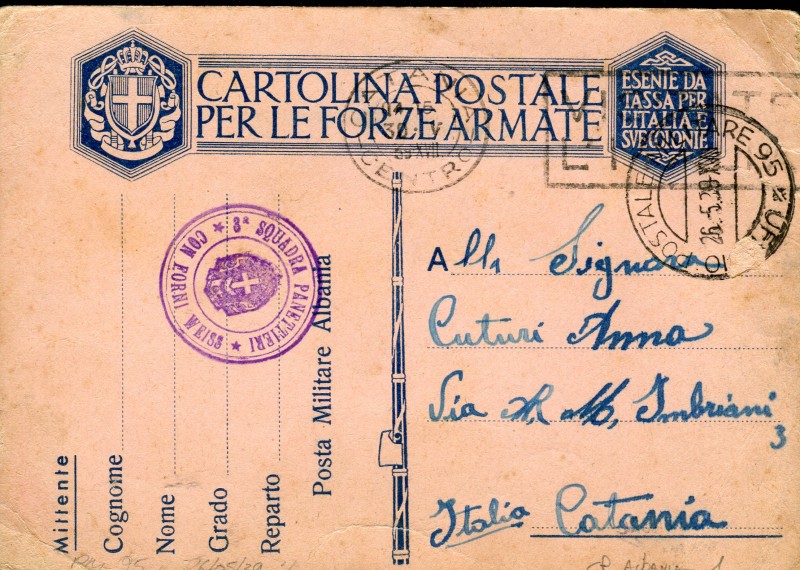 CARTOLINA POSTALE
PER LE FORZE ARMATE
ESENTE DA
TASSA PER
L'ITALIA E
SVE COLONIE
CATANIA
CENTRO
UFFICIO POSTALE MILITARE 95
26.5.39.XVII
3ª SQUADRA PANETTIERI
CON FORNI WEISS
Mittente
Cognome
Nome
Grado
Reparto
Posta Militare Albania
Alla Signora
Cuturi Anna
Via M. R. Imbriani
3
Italia Catania
26/05/39
Albania